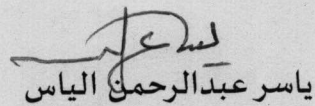 ياسر عبدالرحمن الياس